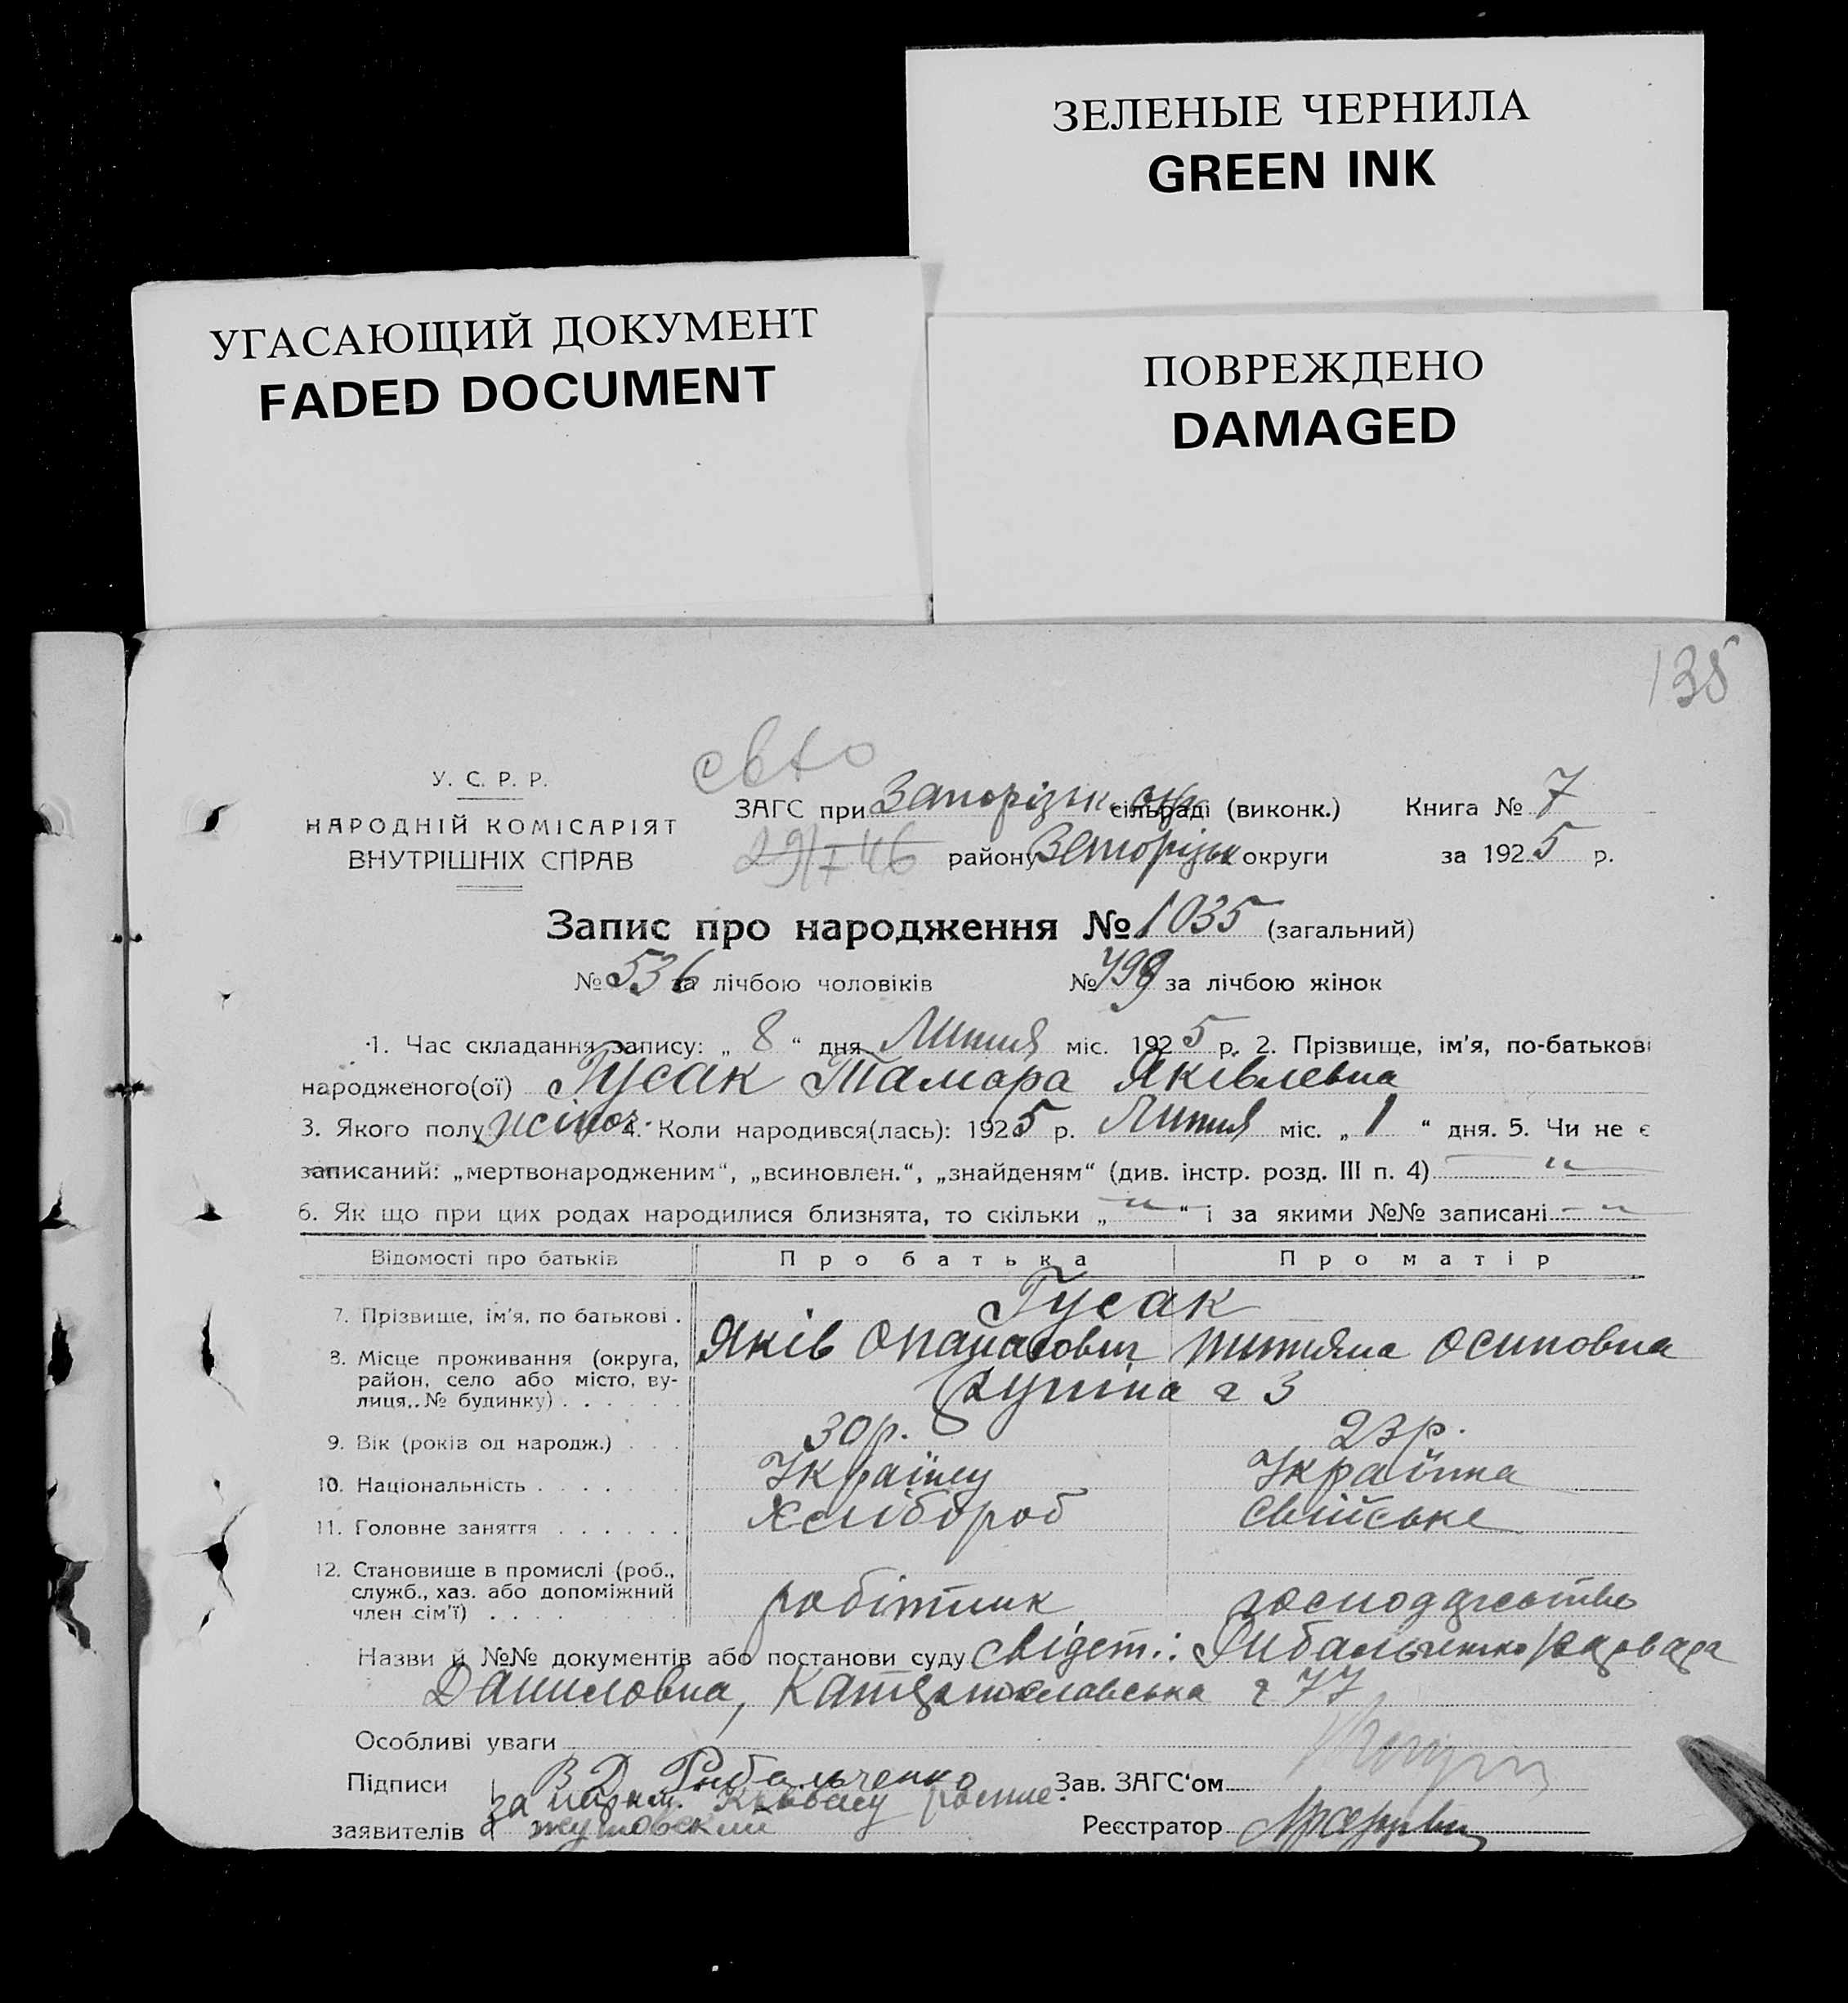 ЗЕЛЕНЫЕ ЧЕРНИЛА
GREEN INK
УГАСАЮЩИЙ ДОКУМЕНТ
FADED DOCUMENT
ПОВРЕЖДЕНО
DAMAGED
135
У. С. Р. Р.
НАРОДНІЙ КОМІСАРІЯТ
ВНУТРІШНІХ СПРАВ
ЗАГС при Запорізьк. окр. сільраді (виконк.) Книга № 7
району Запорізьк округи за 1925 р.
Запис про народження № 1035 (загальний)
№ 536 за лічбою чоловіків № 499 за лічбою жінок
1. Час складання запису: „ 8 “ дня Липня міс. 1925 р. 2. Прізвище, ім'я, по-батькові
народженого(ої) Гусак Тамара Яківлевна
3. Якого полу жіноч. 4. Коли народився(лась): 1925 р. Липня міс. „ 1 “ дня. 5. Чи не є
записаний: „мертвонародженим“, „всиновлен.“, „знайденям“ (див. інстр. розд. III п. 4) — „ —
6. Як що при цих родах народилися близнята, то скільки „ — „ — “ і за якими №№ записані — „ —
Відомості про батьків Про батька Про матір
7. Прізвище, ім'я, по батькові . Гусак
Яків Опанасович Титяна Осиповна
8. Місце проживання (округа,
район, село або місто, ву-
лиця, № будинку) . . . . . . ч 3
9. Вік (років од народж.) . . . 30 р. 23 р.
10. Національність . . . . . . . Українец Українка
11. Головне заняття . . . . . . Хлібороб свійське
12. Становище в промислі (роб.,
служб., хаз. або допоміжний
член сім'ї) . . . . робітник господарство
Назви й №№ документів або постанови суду свідет.: Рибальченко Варвара
Даниловна, Катеринославська ч 77
Особливі уваги
Підписи В Д Рыбальченко Зав. ЗАГС'ом
за
заявителів Реєстратор